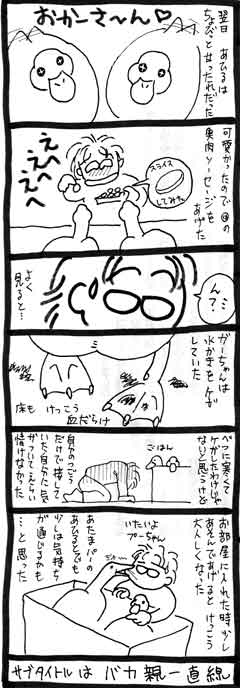 おかーさ〜ん♡
翌日 あひるは
ちょびっと甘ったれだった
可愛かったので❀の
魚肉ソーセージを
あげた
スライス
してみた
え〜へ
え〜へ
え〜へ
ん?…
よく
見ると…
がーちゃんは
水かきをケガ
していた
床も けっこう
血だらけ
べつに寒くて
ケガしたわけじゃ
ないと思うけど
ごはん
自分のつごう
だけで接して
いた自分に気
がついてえらい
情けなかった
お部屋に入れた時少し
あえんであげると けっこう
大人しくなった
いたいよ
プーちゃん
あたまパーの
あひるどもでも
少しは気持ち
が通じるかも
…と思った
サブタイトルは バカ親一直線